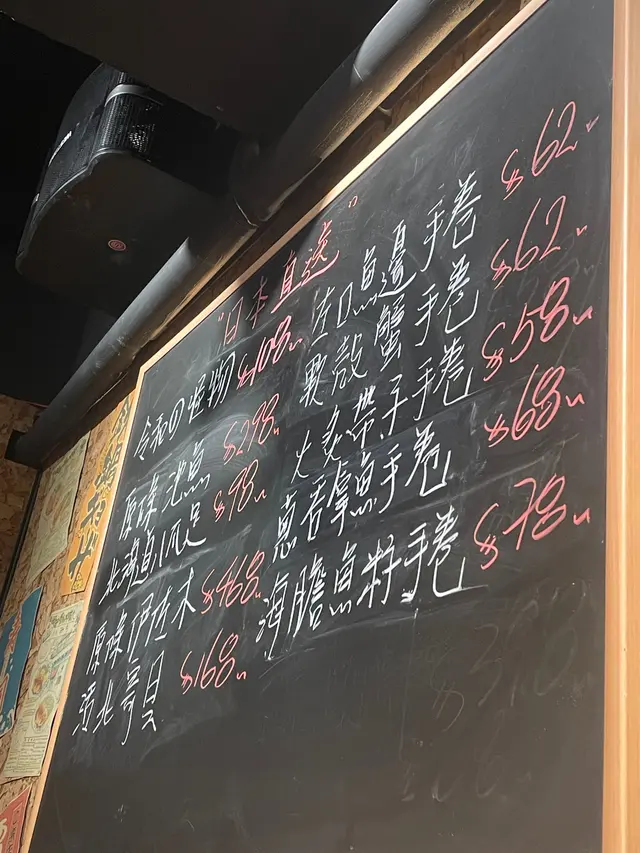 "日本直送"
令和の怪物 $108
原條池魚 $298
北海道八爪足 $98
原條伊佐木 $468
活北寄貝 $168
左口魚邊手卷 $62
軟殼蟹手卷 $62
火炙帶子手卷 $58
蔥吞拿魚手卷 $68
海膽魚籽手卷 $78